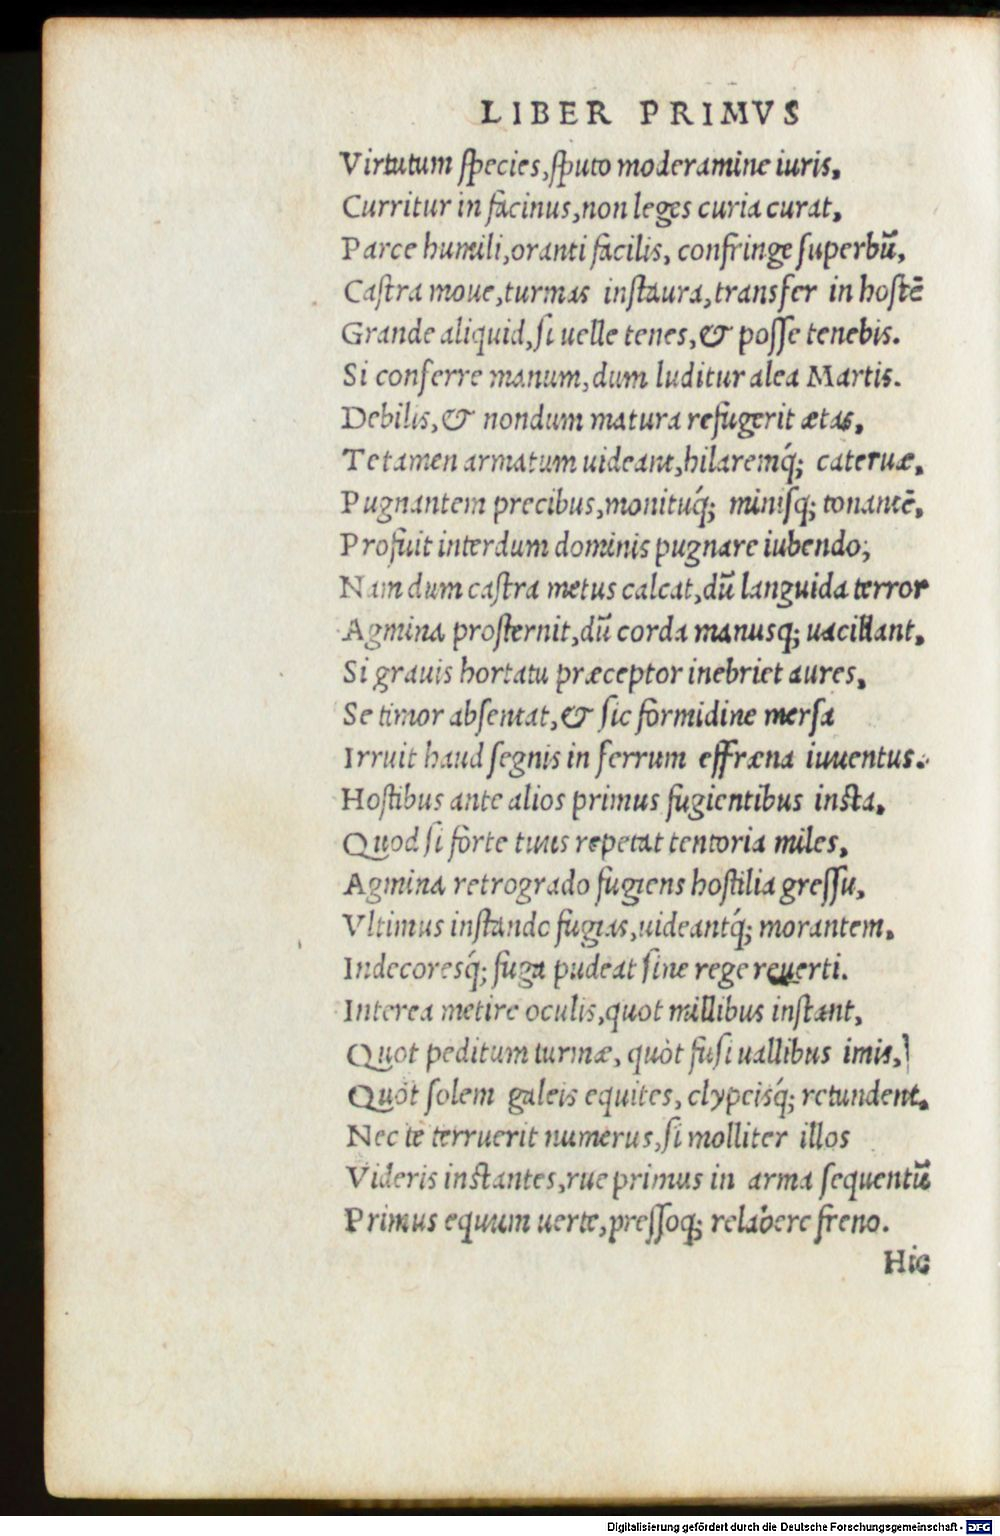 LIBER PRIMVS
Virtutum species, sputo moderamine iuris,
Curritur in facinus, non leges curia curat,
Parce humili, oranti facilis, confringe superbū,
Castra moue, turmas instaura, transfer in hostē
Grande aliquid, si uelle tenes, & posse tenebis.
Si conferre manum, dum luditur alea Martis.
Debilis, & nondum matura refugerit ætas,
Te tamen armatum uideant, hilaremq́; cateruæ,
Pugnantem precibus, monituq́; minisq; tonantē,
Profuit interdum dominis pugnare iubendo;
Nam dum castra metus calcat, dū languida terror
Agmina prosternit, dū corda manusq; uacillant,
Si grauis hortatu præceptor inebriet aures,
Se timor absentat, & sic formidine mersa
Irruit haud segnis in ferrum effræna iuuentus.
Hostibus ante alios primus fugientibus insta,
Quod si forte tuus repetat tentoria miles,
Agmina retrogrado fugiens hostilia gressu,
Vltimus instando fugias, uideantq́; morantem,
Indecoresq́; fuga pudeat sine rege reuerti.
Interea metire oculis, quot millibus instant,
Quot peditum turmæ, quòt fusi uallibus imis,
Quòt solem galeis equites, clypeisq́; retundent,
Nec te terruerit numerus, si molliter illos
Videris instantes, rue primus in arma sequentū
Primus equum uerte, pressoq; relabere freno.
Hic
Digitalisierung gefördert durch die Deutsche Forschungsgemeinschaft - DFG